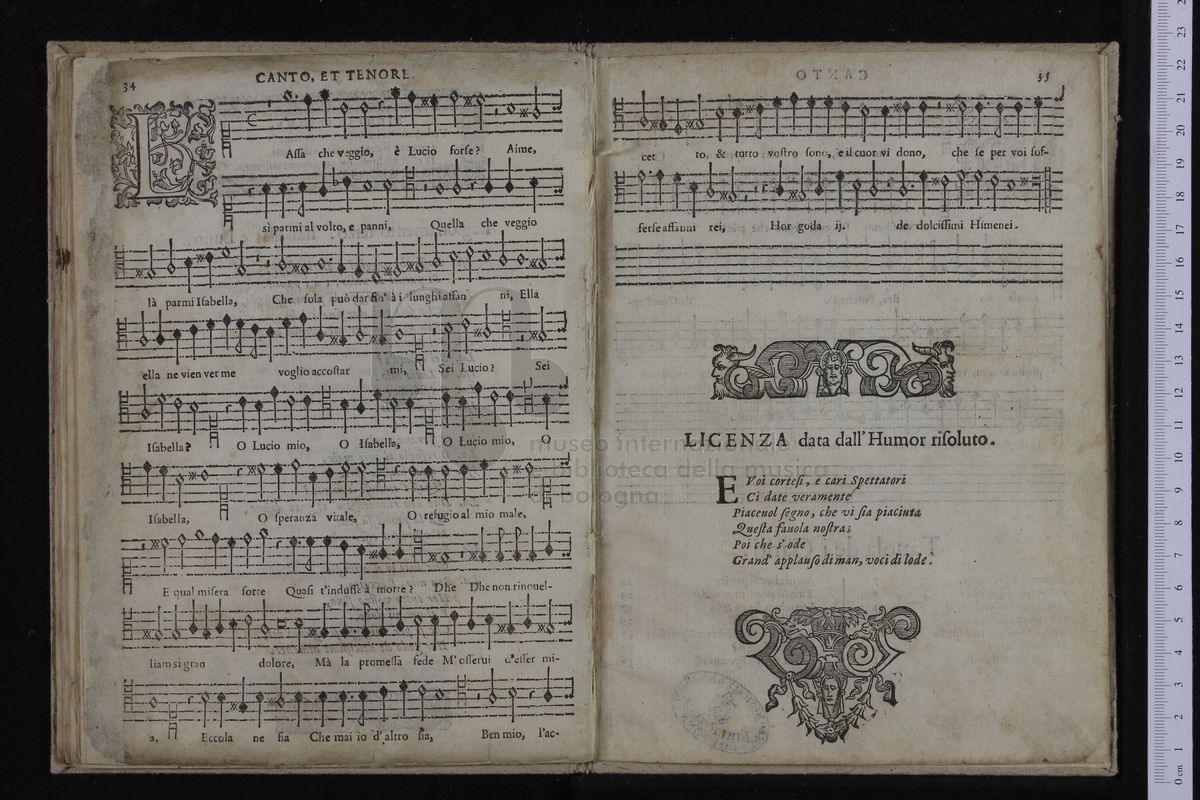 34
CANTO, ET TENORE
LAssa che veggio, è Lucio forse? Aime,
si parmi al volto, e panni, Quella che veggio
là parmi Isabella, Che sola può dar fin' à i lunghi affan ni, Ella
ella ne vien ver me voglio accostar mi, Sei Lucio? Sei
Isabella? O Lucio mio, O Isabella, O Lucio mio, O
Isabella, O speranza vitale, O refugio al mio male,
E qual misera sorte Quasi t'indusse à morte? Dhe Dhe non rinouel-
liam si gran dolore, Mà la promessa fede M'osserui d'esser mi-
a, Eccola ne sia Che mai io d'altro sia, Ben mio, l'ac-
CANTO
35
cet to, & tutto vostro sono, e il cuor vi dono, che se per voi sof-
ferse affanni rei, Hor goda ij. de dolcissimi Himenei.
LICENZA data dall'Humor risoluto.
E Voi cortesi, e cari Spettatori
Ci date veramente
Piaceuol segno, che vi sia piaciuta
Questa fauola nostra;
Poi che s'ode
Grand' applauso di man, voci di lode.
museo internazionale
e biblioteca della musica
di bologna